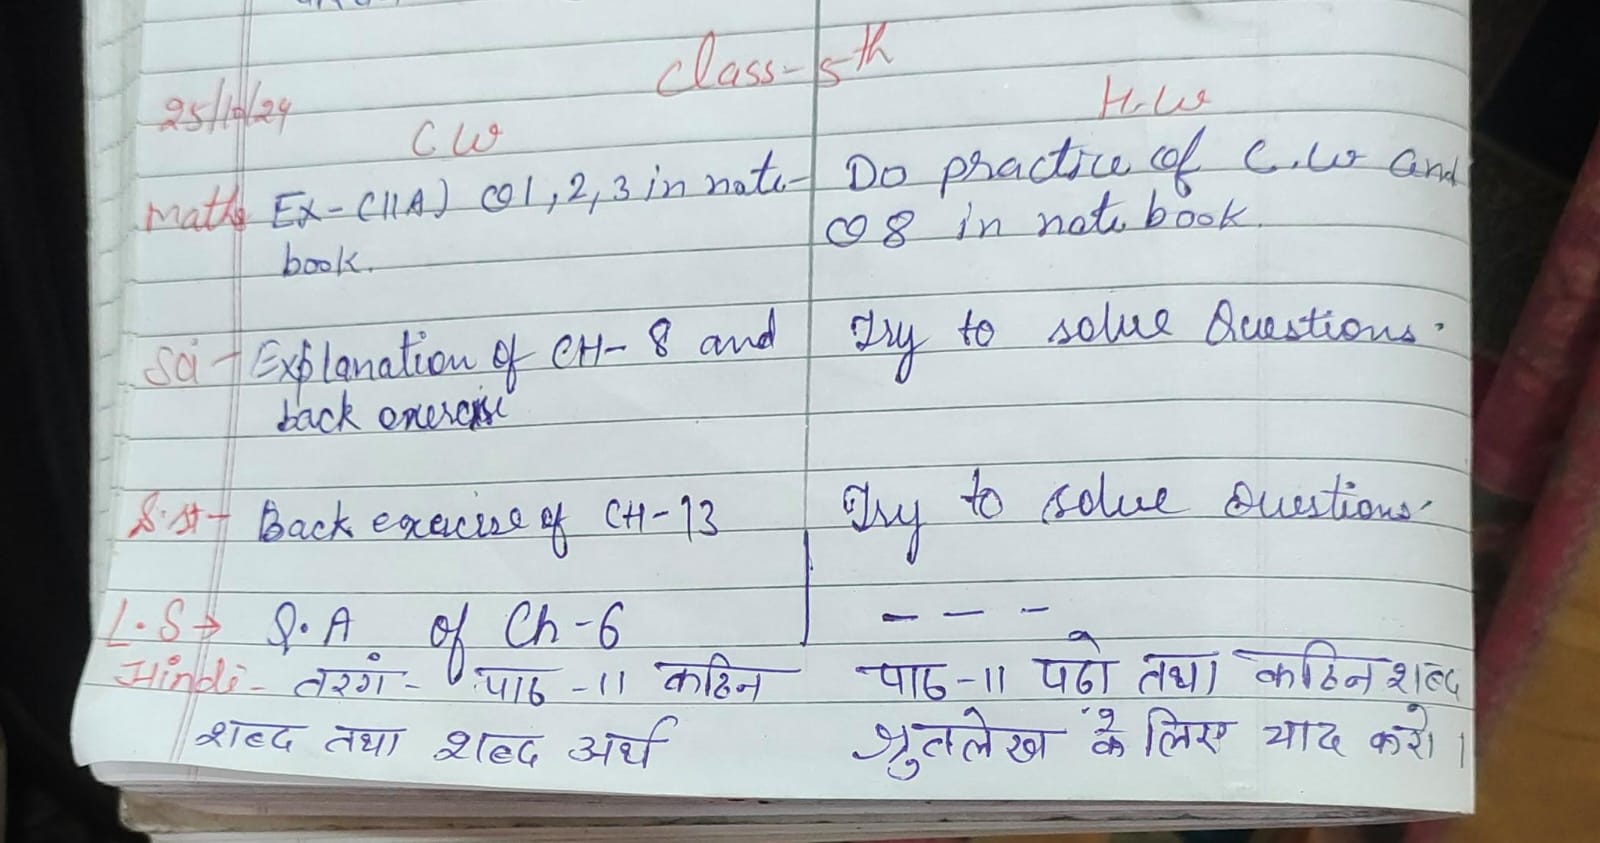 Class-5th
25/10/24
C W
H.W
Maths Ex-C11A) Q1,2,3 in note-
book.
Do practice of C.W and
Q8 in note book.
Sci - Explanation of CH-8 and
back exercise
Try to solve Questions.
S.st - Back exercise of CH-13
Try to solve Questions.
L.S → Q.A of Ch-6
- - -
Hindi - तरगं - पाठ -11 कठिन
शब्द तथा शब्द अर्थ
पाठ-11 पढो तथा कठिन शब्द
श्रुतलेख के लिए याद करो।